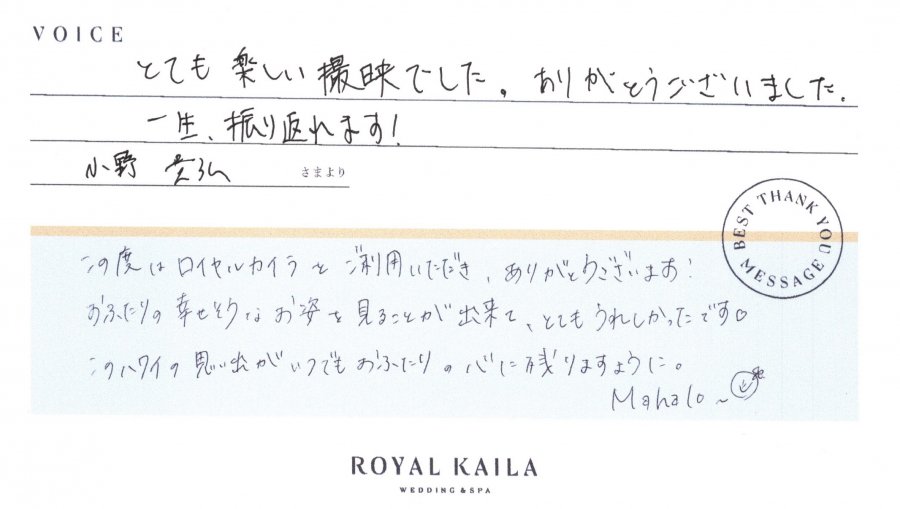 VOICE
とても 楽しい 撮映でした。ありがとうございました。
一生、振り返れます!
小野 さまより
BEST THANK YOU MESSAGE
この度はロイヤルカイラをご利用いただき、ありがとうございます!
おふたりの幸せそうなお姿を見ることが出来て、とてもうれしかったです♡
このハワイの思い出がいつでもおふたりの心に残りますように。
Mahalo~
ROYAL KAILA
WEDDING & SPA